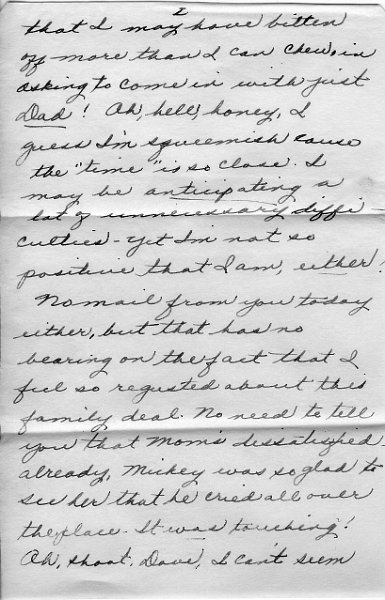 2
that I may have bitten
off more than I can chew, in
asking to come in with just
Dad! Oh, hell, honey, I
guess I'm squeemish cause
the "time" is so close. I
may be anticipating a
lot of unnecessary diffi
culties - yet I'm not so
positive that I am, either!
No mail from you today
either, but that has no
bearing on the fact that I
feel so regusted about this
family deal. No need to tell
you that Mom's dessatisfied
already, Mickey was so glad to
see her that he cried all over
the place. It was touching!
Oh, shoot, Dave, I can't seem